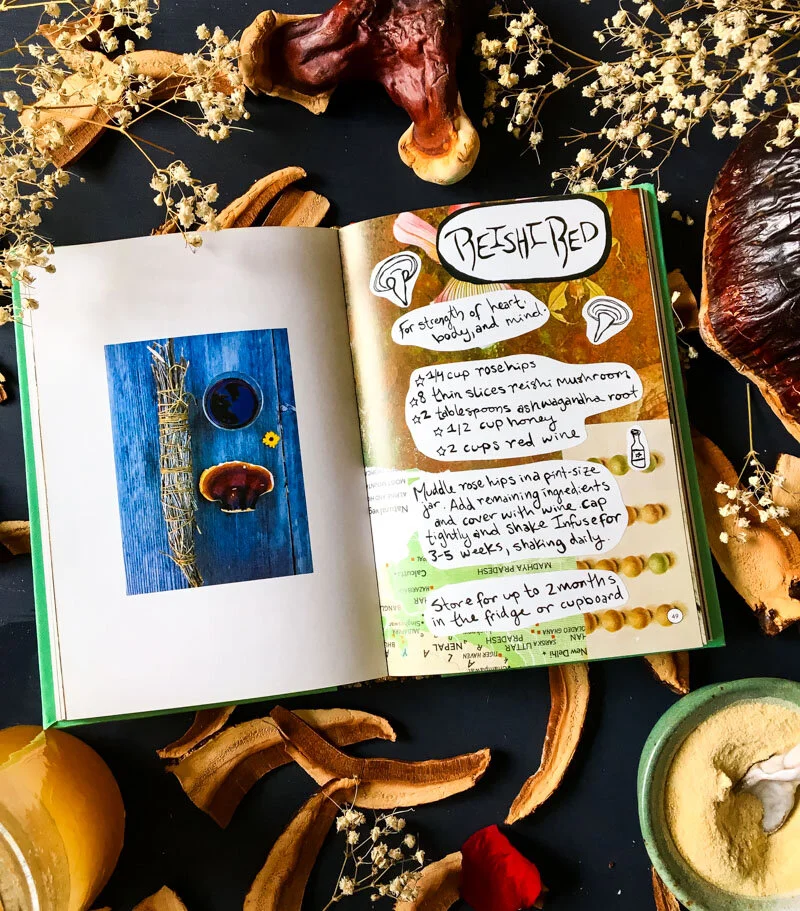 REISHI RED
For strength of heart,
body, and mind.
☆ 1/4 cup rosehips
☆ 8 thin slices reishi mushroom
☆ 2 tablespoons ashwagandha root
☆ 1/2 cup honey
☆ 2 cups red wine
Muddle rose hips in a pint-size
jar. Add remaining ingredients
and cover with wine. Cap
tightly and shake. Infuse for
3-5 weeks, shaking daily.
Store for up to 2 months
in the fridge or cupboard
49
Natural veg
MADHYA PRADESH
Calcutta
NEPAL
UTTAR
PRADESH
TIGER HAVEN
SARISKA
New Delhi